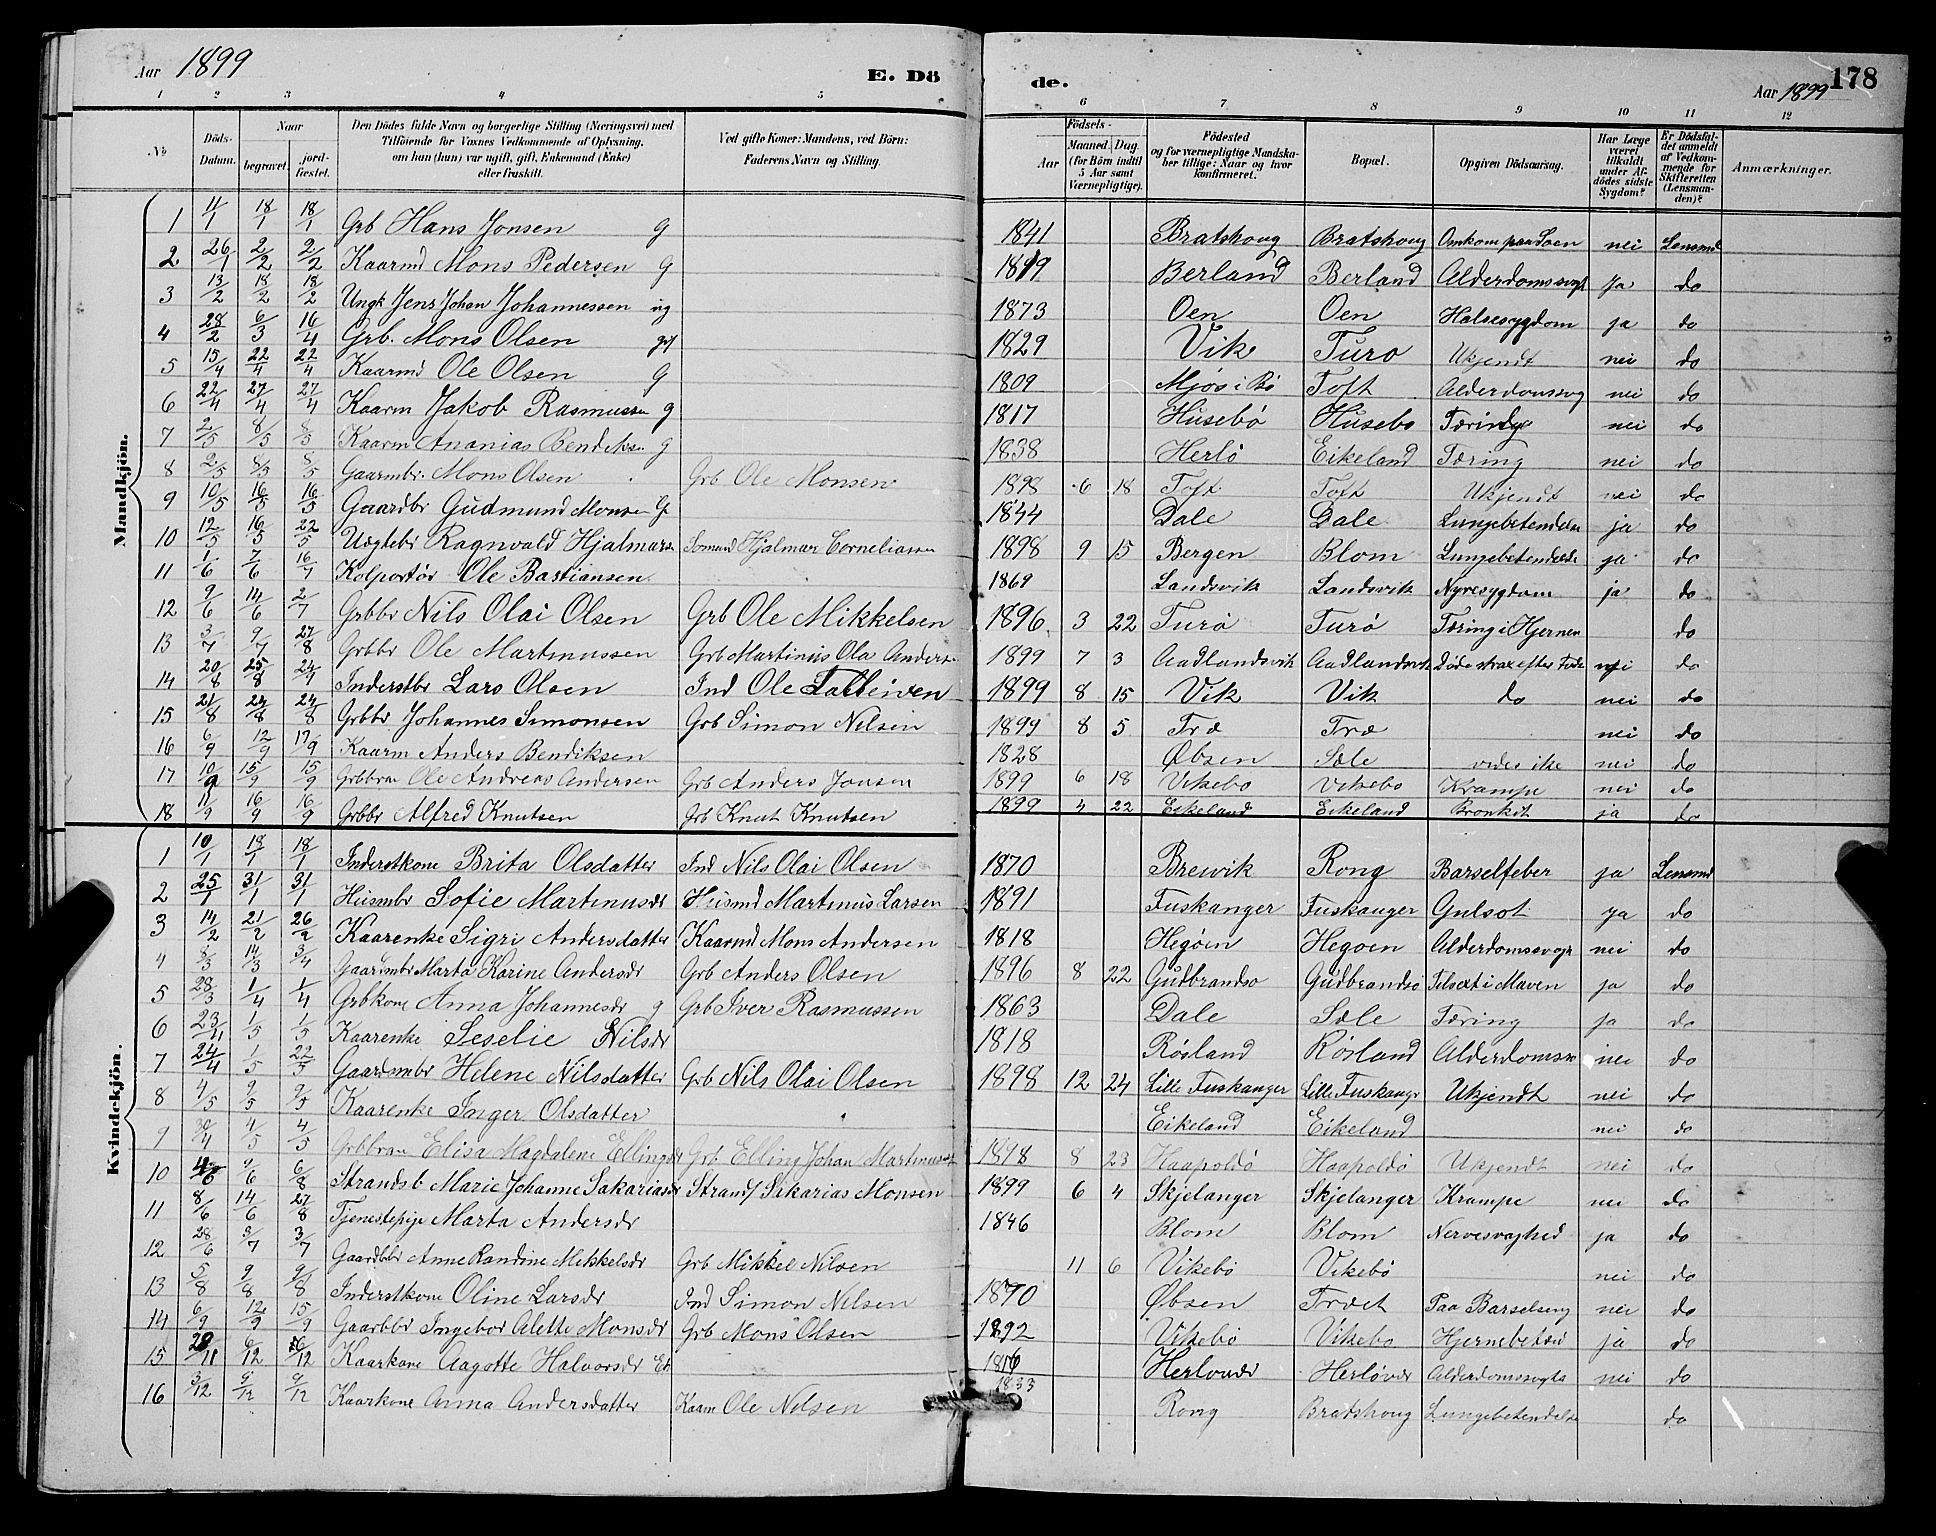 Aar 1899
E. Dö
de.
178
Aar 1899
1 2 3 4 5 6 7 8 9 10 11 12
No
Döds-Datum.
Naar
begravet.
jord-fæstet.
Den Dödes fulde Navn og borgerlige Stilling (Næringsvei) med Tilföiende for Voxnes Vedkommende af Oplysning, om han (hun) var ugift, gift, Enkemand (Enke) eller fraskilt.
Ved gifte Koner: Mandens, ved Börn: Faderens Navn og Stilling.
Födsels-
Aar
Maaned
Dag
(for Börn indtil 5 Aar samt Værnepligtige).
Födested og for værnepligtige Mandskaber tillige: Naar og hvor konfirmeret.
Bopæl.
Opgiven Dödsaarsag.
Har Læge været tilkaldt under Afdödes sidste Sygdom?
Er Dödsfaldet anmeldt af Vedkommende for Skifteretten (Lensmanden)?
Anmærkninger.
Mandkjön.
1 11/1 18/1 18/1 Grb Hans Jonsen g 1841 Bratshoug Bratshoug Omkom paa Soen nei Lensmd
2 26/1 2/2 2/2 Kaarmd Mons Pedersen g 1819 Berland Berland Alderdomssvgt ja do
3 13/2 18/2 18/2 Ungk Jens Johan Johannessen ug 1873 Oen Oen Halsesygdom ja do
4 28/2 6/3 16/4 Grb. Mons Olsen 1829 Vik Turo Ukjendt nei do
5 15/4 22/4 22/4 Kaarmd Ole Olsen g 1809 Mjös i Bö Toft Alderdomssvg nei do
6 22/4 27/4 27/4 Kaarm Jakob Rasmussen g 1817 Husebö Husebo Tæring nei do
7 2/5 8/5 8/5 Kaarm Ananias Bendiksn g 1838 Herlö Eikeland Tæring nei do
8 2/5 8/5 8/5 Gaarmbr. Mons Olsen Grb Ole Monsen 1898 6 18 Toft Toft Ukjendt nei do
9 10/5 16/5 16/5 Gaardbr Gudmund Monsen G 1844 Dale Dale Lungebetendelse ja do
10 12/5 16/5 22/5 Uægtebr Ragnvald Hjalmarsn Somand Hjalmar Corneliassen 1898 9 15 Bergen Blom Lungebetendelse ja do
11 1/6 7/6 16/7 Kolportör Ole Bastiansen 1869 Landsvik Landsvik Nyresygdom ja do
12 9/6 14/6 2/7 Grbbr Nils Olai Olsen Grb Ole Mikkelsen 1896 3 22 Turö Turö Tæring i Hjernen do
13 3/7 9/7 27/8 Grbbr Ole Martinussen Grb Martinus Ola Anders 1899 7 3 Aadlandsvik Aadlandsvik Döde strax efter Föds nei do
14 20/8 25/8 Inderstbr Lars Olsen Ind Ole 1899 8 15 Vik Vik do nei do
15 21/8 24/8 24/8 Grbbr Johannes Simonsen Grb Simon Nilsen 1899 8 5 Træ Træ nei do
16 6/9 12/9 17/9 Kaarm Anders Bendiksen 1828 Öbsen Sæle vides ike nei do
17 10/9 15/9 15/9 Grbbrn Ole Andreas Andersen Grb Anders Jonsen 1899 6 18 Vikebo Vikebo Krampe nei do
18 11/9 16/9 16/9 Grbbr Alfred Knutsen Grb Knut Knutsen 1899 4 22 Eikeland Eikeland Bronkit ja do
Kvindekjön.
1 10/1 18/1 18/1 Inderstkone Brita Olsdatter Ind Nils Olai Olsen 1870 Brewik Rong Barselfeber ja Lensmd
2 25/1 31/1 31/1 Husmbr Sofie Martinusdr Husmd Martinus Larsen 1891 Fuskanger Fuskanger Gulsot ja do
3 14/2 21/2 26/2 Kaarenke Sigri Andersdatter Kaarmd Mons Andersen 1818 Hegöen Hegoen Alderdomssvagt nei do
4 8/3 14/3 3/4 Gaardmbr Marta Karine Andersdr Grb Anders Olsen 1896 8 22 Gudbrandso Gudbrandsö Tilsæt i Maven ja do
5 28/3 1/4 1/4 Grbkone Anna Johannesdr g Grb Iver Rasmussen 1863 Dale Sæle Tæring ja do
6 23/11 1/5 1/5 Kaarenke Seselie Nilsdr 1818 Rösland Rösland Alderdomssv nei do
7 24/4 1/5 22/5 Gaardmbr Helene Nilsdatter Grb Nils Olai Olsen 1898 12 24 Lille Fuskanger Lille Fuskangr Ukjendt nei do
8 4/5 9/5 9/5 Kaarenke Inger Olsdatter Eikeland Eikeland nei do
9 30/4 4/5 4/5 Grbbrn Elisa Magdalene Ellingdr Grb Elling Johan Martinusen 1898 8 23 Haapoldö Haapoldö Ukjendt nei do
10 9/6 6/8 Strandsb Marie Johanne Sakariasdr Strands Sakarias Monsen 1899 6 4 Skjelanger Skjelanger Krampe nei do
11 8/6 14/6 27/8 Tjenestepige Marta Andersdr 1846 Blom Blom Nervesvaghed ja do
12 28/6 3/7 3/7 Gaardbbr Anne Randine Mikkelsdr Grb Mikkel Nilsen 11 6 Vikebö Vikebö nei do
13 5/8 9/8 9/8 Inderstkone Oline Larsdr Ind Simon Nilsen 1870 Öbsen Træet Paa Barselseng nei do
14 6/9 12/9 15/9 Gaardbbr Ingebor Alette Monsdr Grb Mons Olsen 1892 Vikebö Vikebo Hjernebetæn ja do
15 28/11 6/12 26/12 Kaarkone Aagotte Halvorsdr Ek 1816 Herlovær Herlövær Alderdomssvagts nei do
16 3/12 9/12 9/12 Kaarkone Anna Andersdatter Kaarm Ole Nilsen 1833 Rong Bratshoug Lungebetendelse do